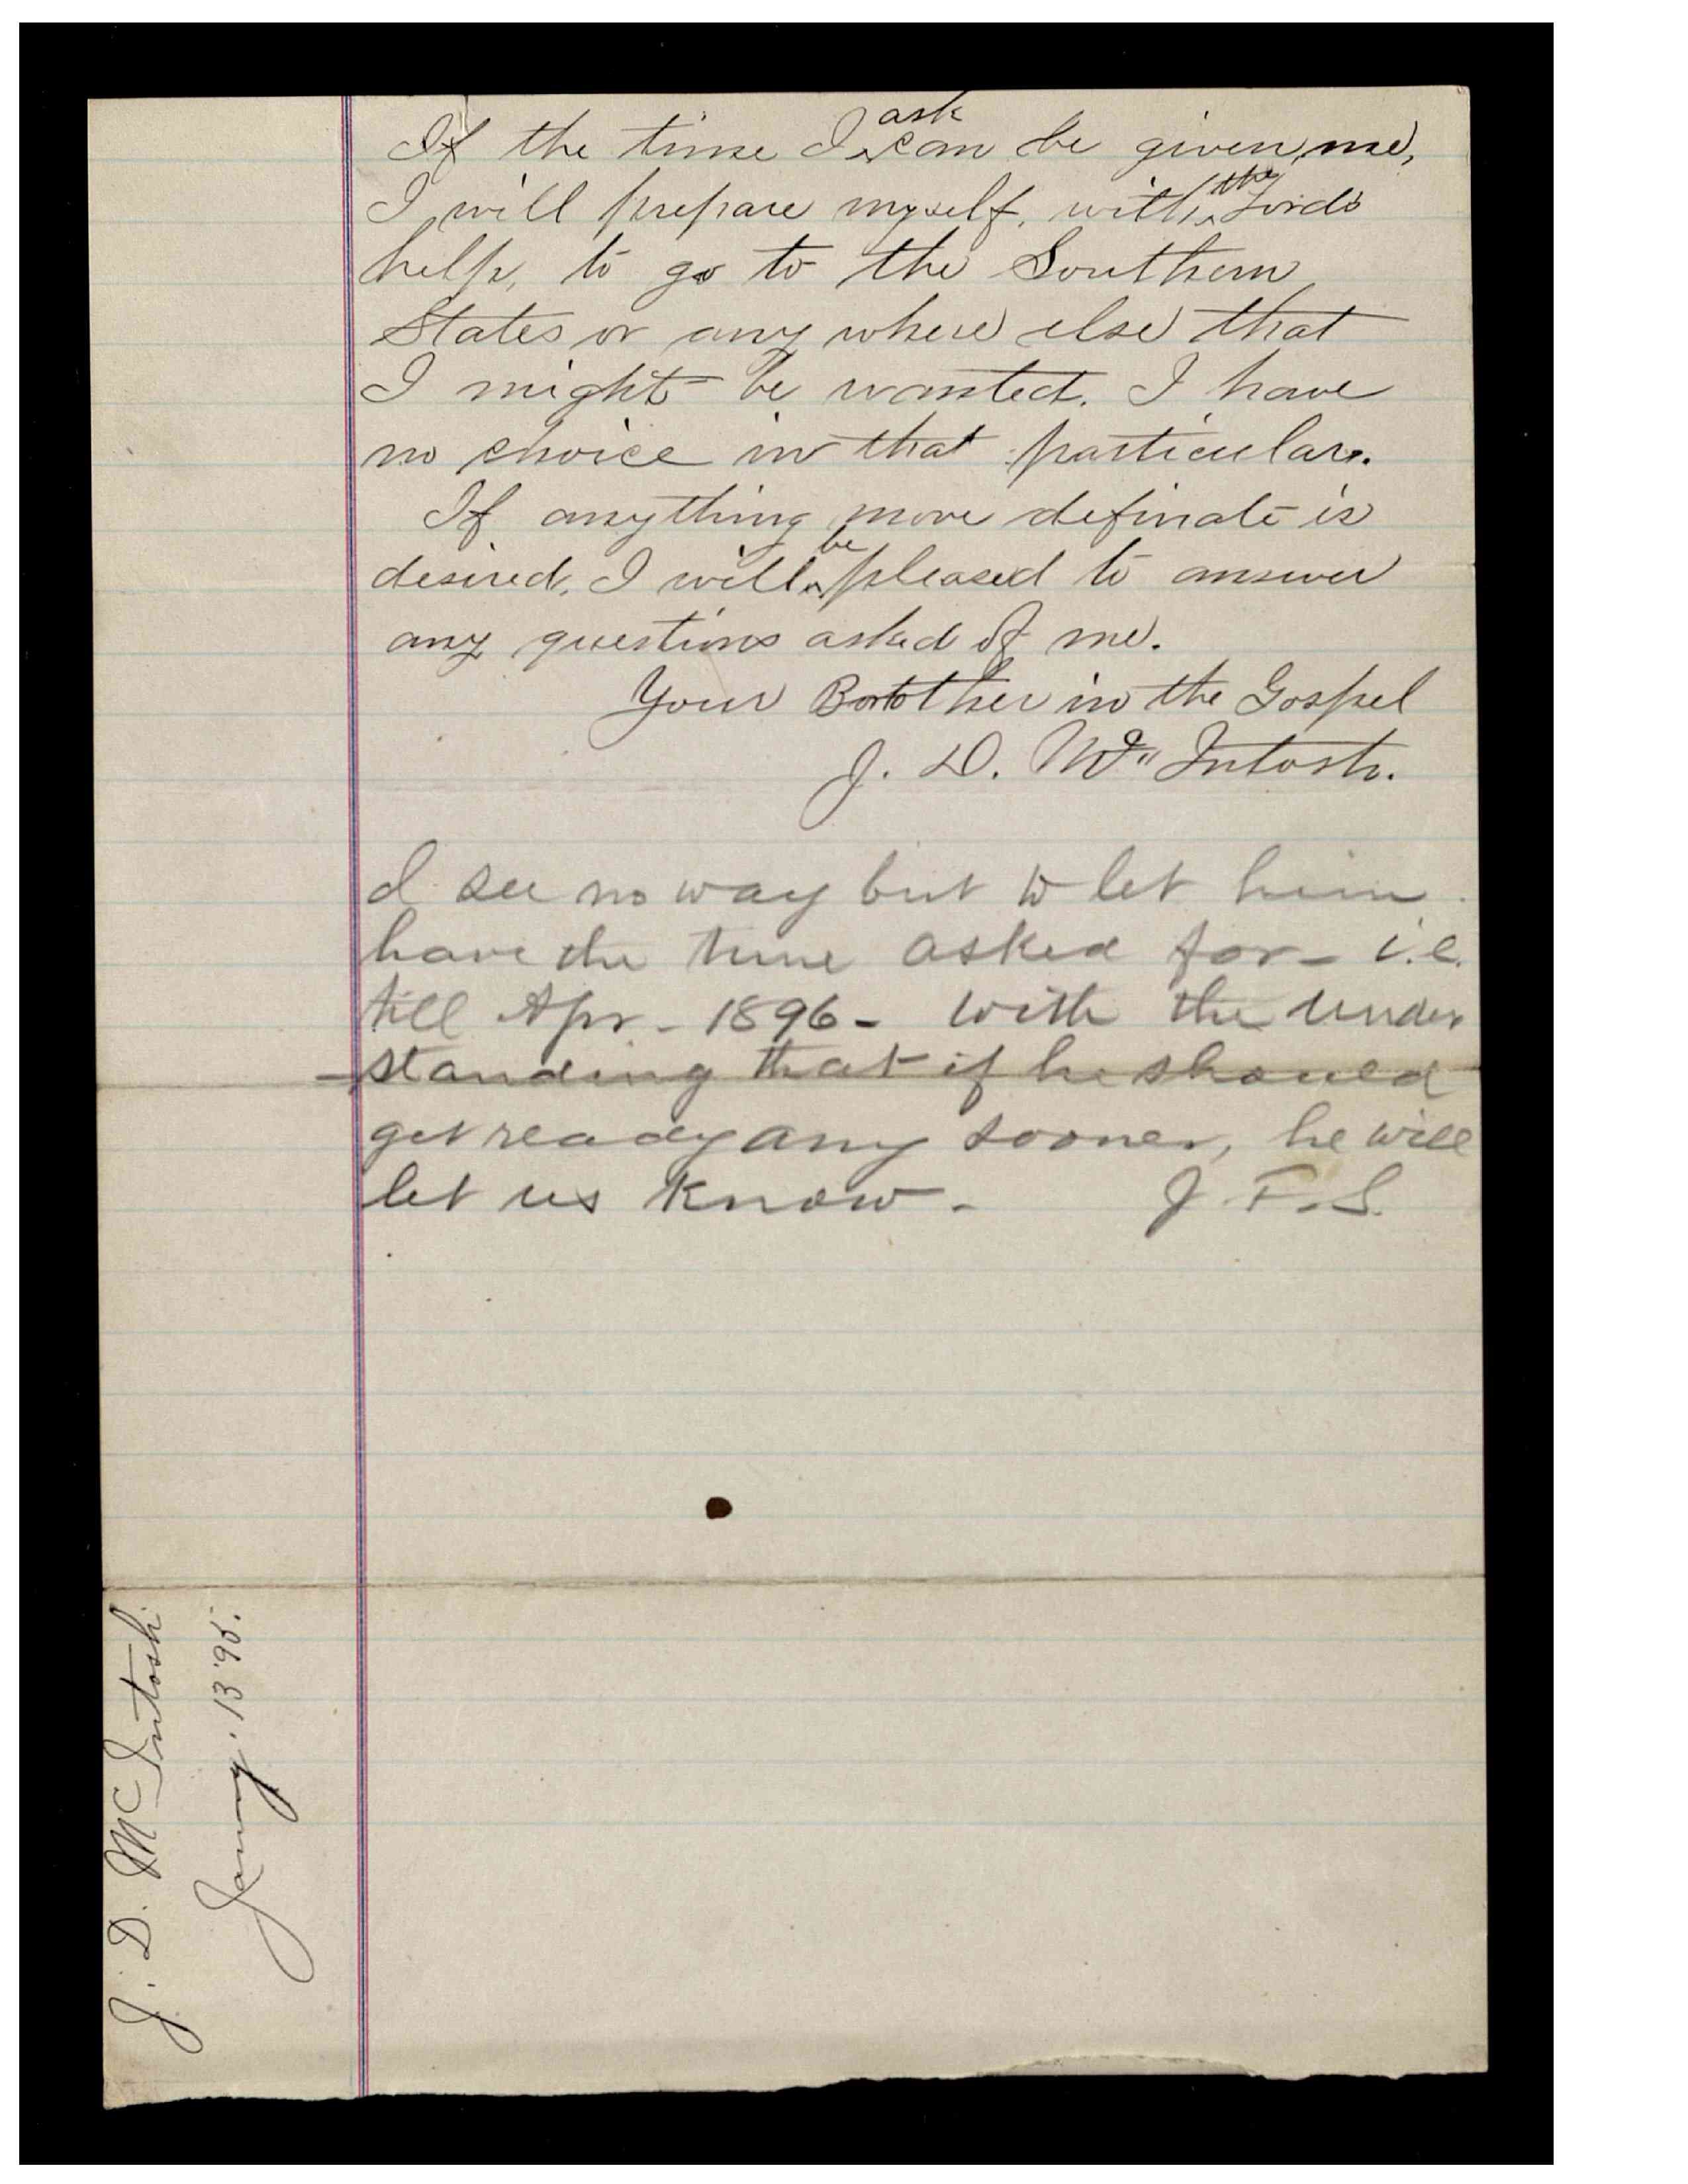 If the time I ask can be given me,
I will prepare myself, with the Lords
help, to go to the Southern
States or any where else that
I might be wanted. I have
no choice in that particular.
If anything more definate is
desired, I will be pleased to answer
any questions asked of me.
Your Brother in the Gospel
J. D. McIntosh.
I see no way but to let him
have the time asked for - i.e.
till Apr - 1896 - with the under
standing that if he should
get ready any sooner, he will
let us know. J. F. S.
J. D. McIntosh
January. 13 '95.